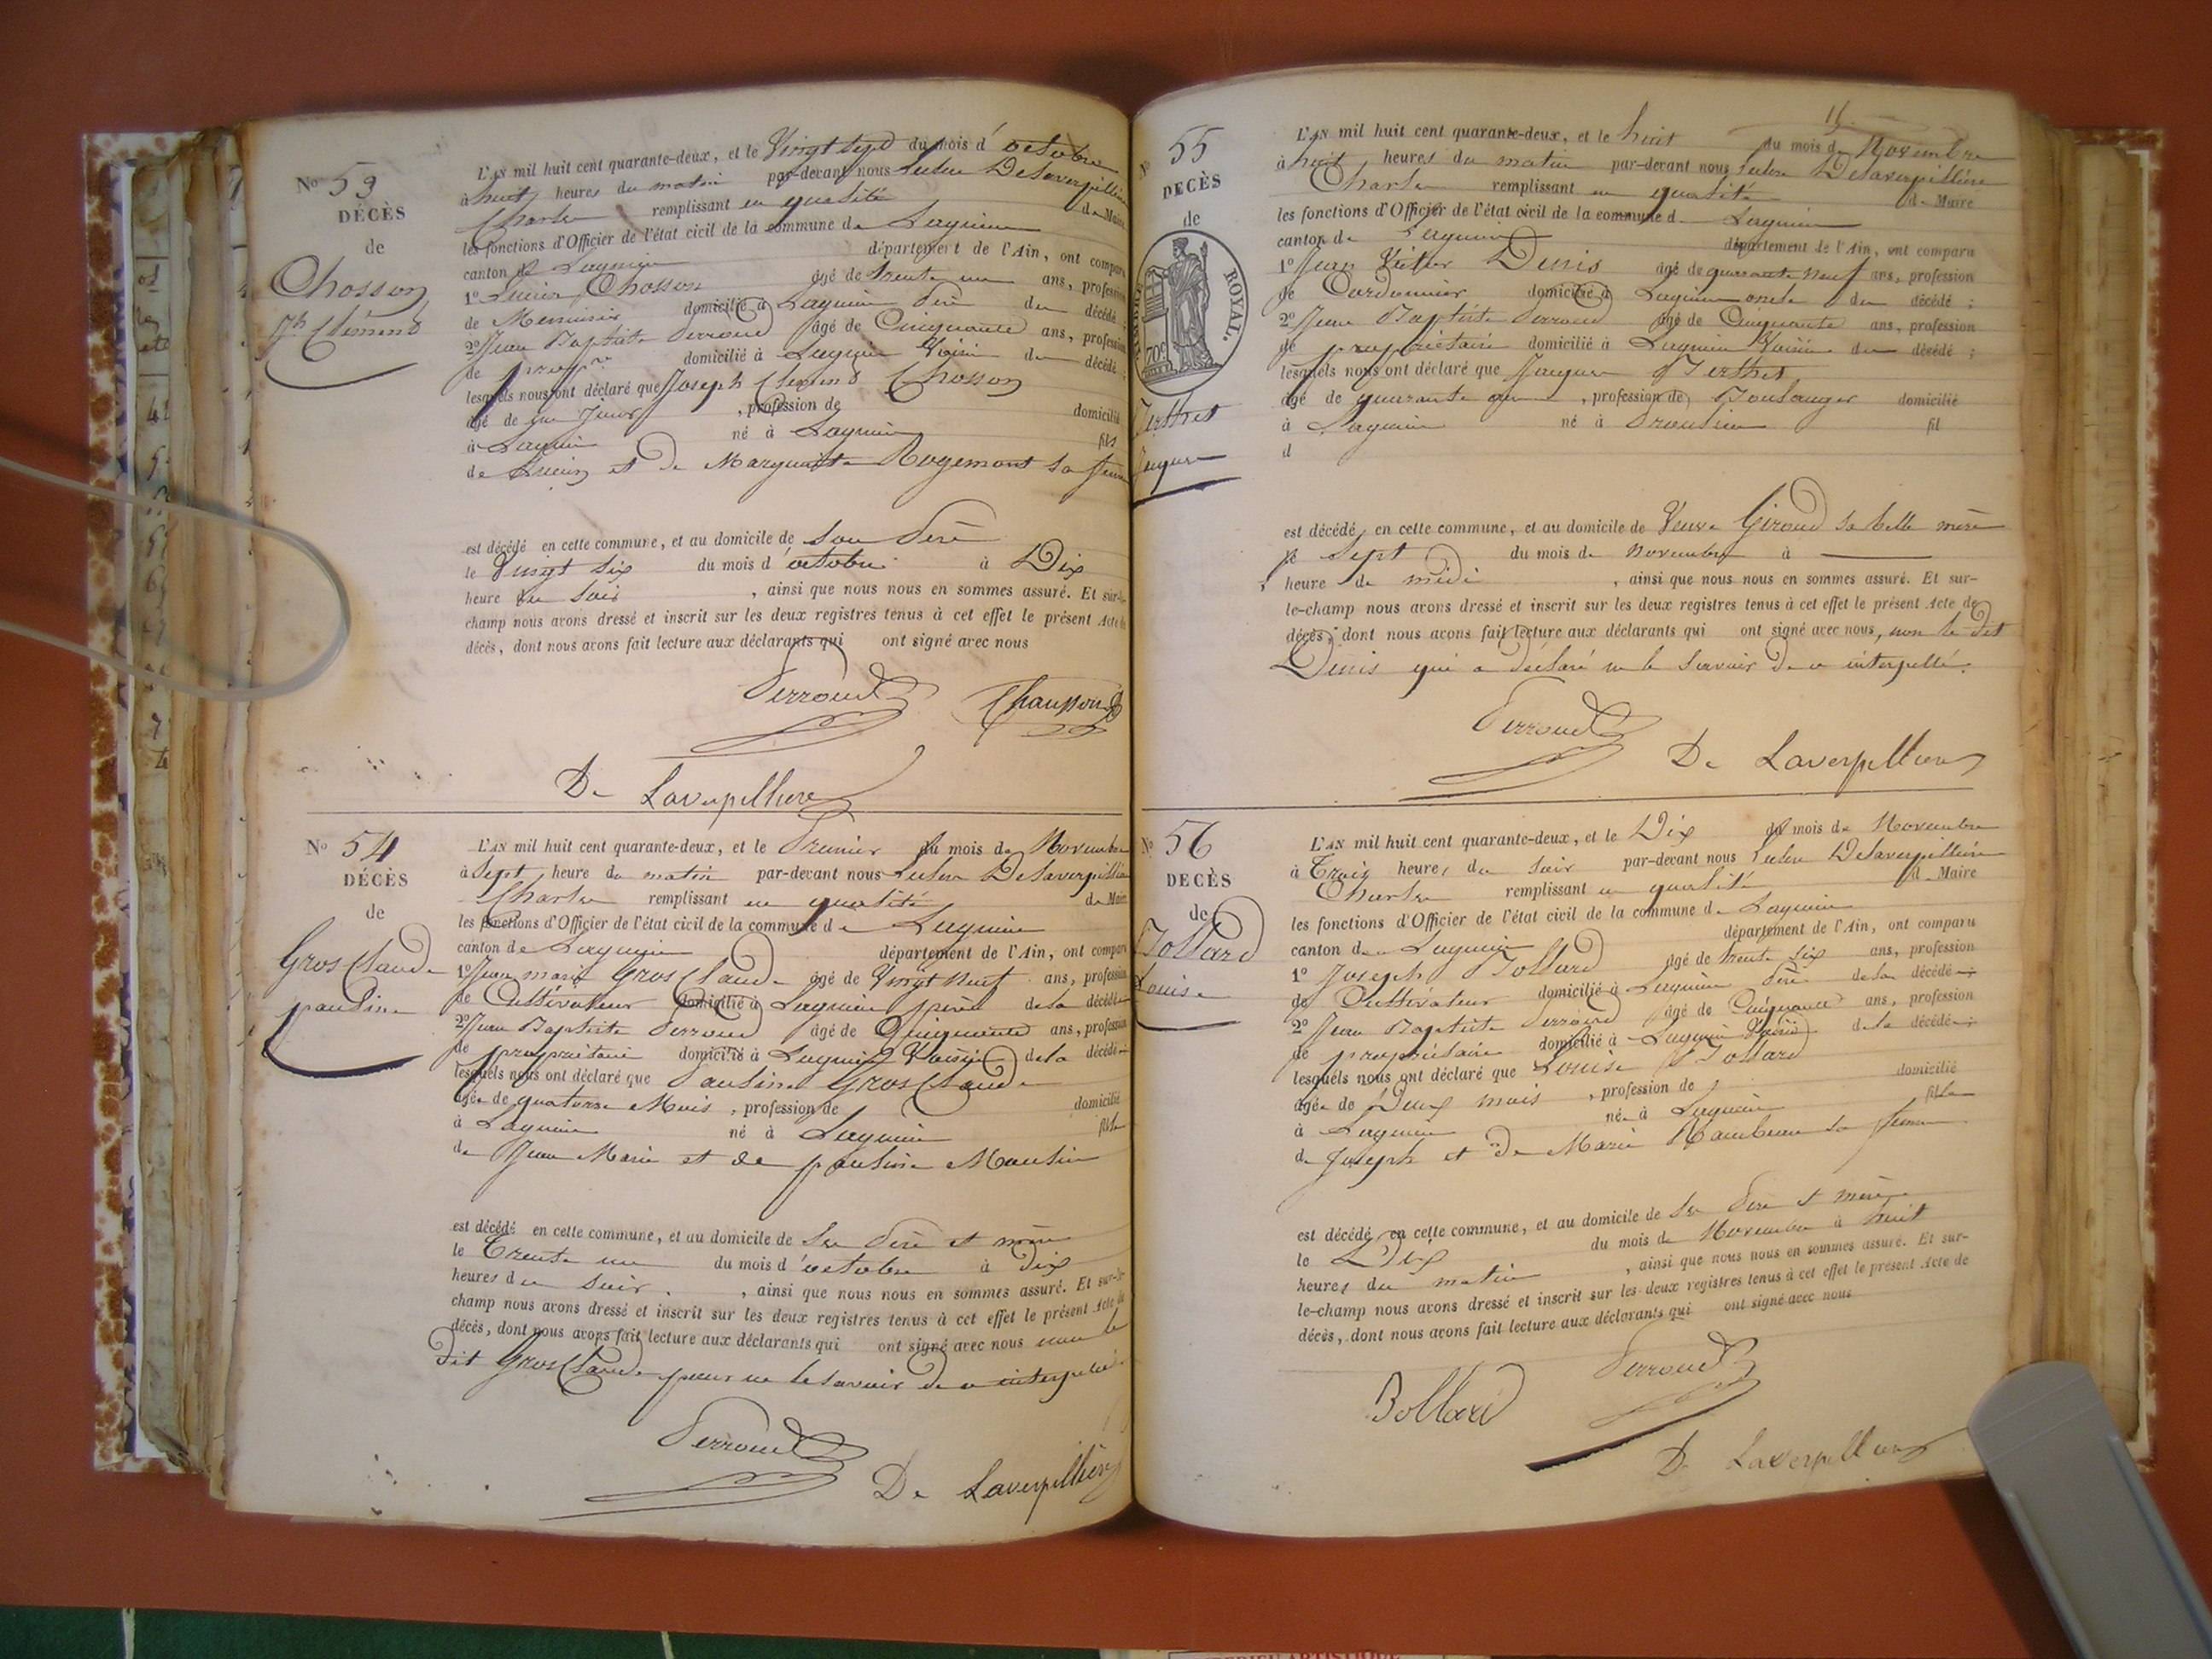 No 53
DÉCÈS
de
Chosson
Jh Clémend
L'AN mil huit cent quarante-deux, et le Vingt Sept du mois d' octobre
à huit heures du matin par-devant nous
Charles remplissant en qualité de Maire
les fonctions d'Officier de l'état civil de la commune de Lagnieu
canton de Lagnieu département de l'Ain, ont comparu
1o Lucien Chosson âgé de trente un ans, profession
de Menuisier domicilié à Lagnieu Père du décédé ;
2o Jean Baptiste Perroud âgé de Cinquante ans, profession
de domicilié à Lagnieu Voisin du décédé ;
lesquels nous ont déclaré que Joseph Clemend Chosson
âgé de un Jour , profession de domicilié
à Lagnieu né à Lagnieu fils
de Lucien et de Marguerite Rogemont sa femme
est décédé en cette commune, et au domicile de Son Père
le Vingt Six du mois d'octobre à Dix
heure du Soir , ainsi que nous nous en sommes assuré. Et sur-le-
champ nous avons dressé et inscrit sur les deux registres tenus à cet effet le présent Acte de
décès, dont nous avons fait lecture aux déclarants qui ont signé avec nous
Perroud Chausson
De Laverpilliere
No 54
DÉCÈS
de
Gros Claude
pauline
L'AN mil huit cent quarante-deux, et le Premier du mois de Novembre
à Sept heure du matin par-devant nous
Charles remplissant en qualité de Maire
les fonctions d'Officier de l'état civil de la commune de Lagnieu
canton de Lagnieu département de l'Ain, ont comparu
1o Jean marie Gros Claude âgé de Vingt Neuf ans, profession
de Cultivateur domicilié à Lagnieu père de la décédée
2o Jean Baptiste Perroud âgé de Cinquante ans, profession
de propriétaire domicilié à Lagnieu Voisin de la décédée
lesquels nous ont déclaré que Pauline Gros Claude
âgée de quatorze Mois , profession de domicilié
à Lagnieu né à Lagnieu fille
de Jean Marie et de pauline Moulin
est décédé en cette commune, et au domicile de Ses Père et mère
le Trente un du mois d'octobre à Dix
heures du Soir. , ainsi que nous nous en sommes assuré. Et sur-le-
champ nous avons dressé et inscrit sur les deux registres tenus à cet effet le présent Acte de
décès, dont nous avons fait lecture aux déclarants qui ont signé avec nous non le
dit Gros Claude pour ne le savoir de ce interpellé
Perroud
De Laverpilliere
No 55
DECÈS
de
TIMBRE ROYAL.
70c
Berthet
Jacques
L'AN mil huit cent quarante-deux, et le huit du mois de Novembre
à huit heures du matin par-devant nous
Charles remplissant en qualité de Maire
les fonctions d'Officier de l'état civil de la commune d- Lagnieu
canton de Lagnieu département de l'Ain, ont comparu
1o Jean Victor Denis âgé de quarante Neuf ans, profession
de Cordonnier domicilié à Lagnieu oncle du décédé ;
2o Jean Baptiste Perroud âgé de Cinquante ans, profession
de propriétaire domicilié à Lagnieu Voisin du décédé ;
lesquels nous ont déclaré que Jacques Berthet
âgé de quarante , profession de Boulanger domicilié
à Lagnieu né à fil
d
est décédé en cette commune, et au domicile de Veuve Giroud sa belle mère
le Sept du mois de Novembre à
heure de midi , ainsi que nous nous en sommes assuré. Et sur-
le-champ nous avons dressé et inscrit sur les deux registres tenus à cet effet le présent Acte de
décès, dont nous avons fait lecture aux déclarants qui ont signé avec nous, non le dit
Denis qui a déclaré ne le Savoir de ce interpellé.
Perroud
De Laverpilliere
No 56
DECÈS
de
Bollard
Louise
L'AN mil huit cent quarante-deux, et le Dix du mois de Novembre
à Trois heures du Soir par-devant nous
Charles remplissant en qualité de Maire
les fonctions d'Officier de l'état civil de la commune de Lagnieu
canton de Lagnieu département de l'Ain, ont comparu
1o Joseph Bollard âgé de trente Six ans, profession
de Cultivateur domicilié à Lagnieu Père de la décédée
2o Jean Baptiste Perroud âgé de Cinquante ans, profession
de propriétaire domicilié à Lagnieu Voisin de la décédée
lesquels nous ont déclaré que Louise Bollard
âgée de Deux mois , profession de domicilié
à Lagnieu née à Lagnieu fille
de Joseph et de Marie sa femme
est décédé en cette commune, et au domicile de Ses Père et mère
le Dix du mois de Novembre à huit
heures du matin , ainsi que nous nous en sommes assuré. Et sur-
le-champ nous avons dressé et inscrit sur les deux registres tenus à cet effet le présent Acte de
décès, dont nous avons fait lecture aux déclarants qui ont signé avec nous
Perroud
Bollard
De Laverpilliere